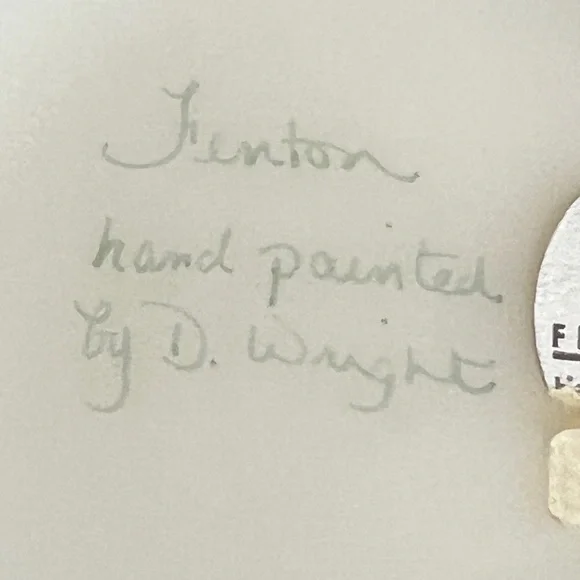 Fenton
hand painted
by D. Wright
F